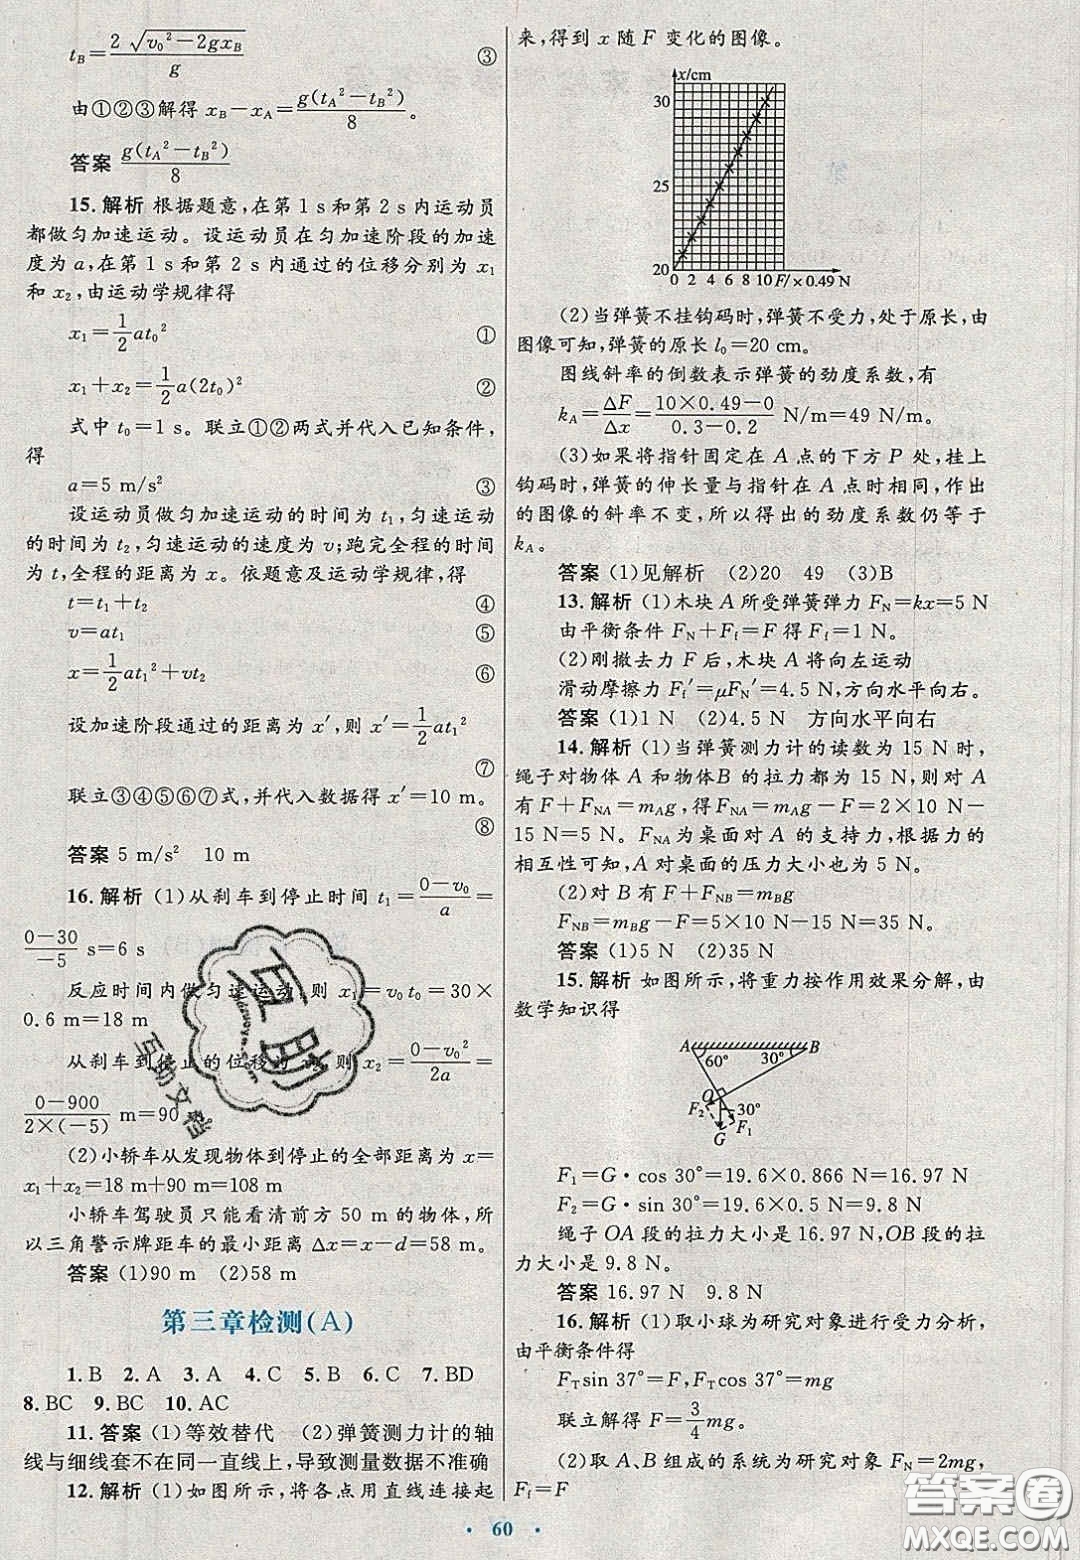 t_B=2√(v₀²−2gx_B)/g ③
由①②③解得 x_B−x_A=g(t_A²−t_B²)/8。
答案 g(t_A²−t_B²)/8
15.解析 根据题意,在第1 s和第2 s内运动员
都做匀加速运动。设运动员在匀加速阶段的加速
度为a,在第1 s和第2 s内通过的位移分别为x₁
和x₂,由运动学规律得
x₁=1/2at₀² ①
x₁+x₂=1/2a(2t₀)² ②
式中t₀=1 s。联立①②两式并代入已知条件,
得
a=5 m/s² ③
设运动员做匀加速运动的时间为t₁,匀速运动
的时间为t₂,匀速运动的速度为v;跑完全程的时间
为t,全程的距离为x。依题意及运动学规律,得
t=t₁+t₂ ④
v=at₁ ⑤
x=1/2at₁²+vt₂ ⑥
设加速阶段通过的距离为x′,则x′=1/2at₁²
⑦
联立③④⑤⑥⑦式,并代入数据得x′=10 m。
⑧
答案 5 m/s² 10 m
16.解析 (1)从刹车到停止时间t₁=(0−v₀)/a=
(0−30)/−5 s=6 s
反应时间内做匀速运动,则x₁=v₀t₀=30×
0.6 m=18 m
从刹车到停止的位移为 则x₂=(0−v₀²)/2a=
(0−900)/(2×(−5)) m=90
(2)小轿车从发现物体到停止的全部距离为x=
x₁+x₂=18 m+90 m=108 m
小轿车驾驶员只能看清前方50 m的物体,所
以三角警示牌距车的最小距离Δx=x−d=58 m。
答案 (1)90 m (2)58 m
第三章检测(A)
1.B 2.A 3.A 4.C 5.B 6.C 7.BD
8.BC 9.BC 10.AC
11.答案 (1)等效替代 (2)弹簧测力计的轴
线与细线套不在同一直线上,导致测量数据不准确
12.解析 (1)如图所示,将各点用直线连接起
来,得到x随F变化的图像。
x/cm
30
25
20
0 2 4 6 8 10 F/×0.49 N
(2)当弹簧不挂钩码时,弹簧不受力,处于原长,由
图像可知,弹簧的原长l₀=20 cm。
图线斜率的倒数表示弹簧的劲度系数,有
k_A=ΔF/Δx=(10×0.49−0)/(0.3−0.2) N/m=49 N/m。
(3)如果将指针固定在A点的下方P处,挂上
钩码时,弹簧的伸长量与指针在A点时相同,作出
的图像的斜率不变,所以得出的劲度系数仍等于
k_A。
答案 (1)见解析 (2)20 49 (3)B
13.解析 (1)木块A所受弹簧弹力F_N=kx=5 N
由平衡条件F_N+F_f=F得F_f=1 N。
(2)刚撤去力F后,木块A将向左运动
滑动摩擦力F_f′=μF_N′=4.5 N,方向水平向右。
答案 (1)1 N (2)4.5 N 方向水平向右
14.解析 (1)当弹簧测力计的读数为15 N时,
绳子对物体A和物体B的拉力都为15 N,则对A
有F+F_NA=m_Ag,得F_NA=m_Ag−F=2×10 N−
15 N=5 N。F_NA为桌面对A的支持力,根据力的
相互性可知,A对桌面的压力大小也为5 N。
(2)对B有F+F_NB=m_Bg
F_NB=m_Bg−F=5×10 N−15 N=35 N。
答案 (1)5 N (2)35 N
15.解析 如图所示,将重力按作用效果分解,由
数学知识得
A 60° 30° B
O
F₂ 30° F₁
G
F₁=G·cos 30°=19.6×0.866 N=16.97 N
F₂=G·sin 30°=19.6×0.5 N=9.8 N
绳子OA段的拉力大小是16.97 N,OB段的拉
力大小是9.8 N。
答案 16.97 N 9.8 N
16.解析 (1)取小球为研究对象进行受力分析,
由平衡条件得
F_Tsin 37°=F,F_Tcos 37°=mg
联立解得F=3/4mg。
(2)取A、B组成的系统为研究对象F_N=2mg,
F_f=F
· 60 ·
互助
互助文档
答案圈
MXQE.COM